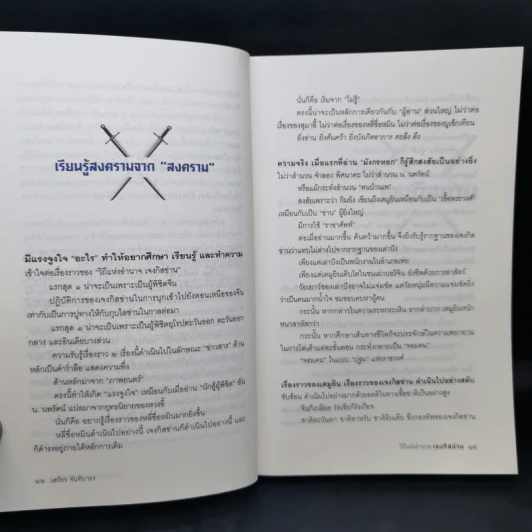 เรียนรู้สงครามจาก “สงคราม”
มีแรงจูงใจ “อะไร” ทำให้อยากศึกษา เรียนรู้ และทำความ
เข้าใจต่อเรื่องราวของ “วิถีแห่งอำนาจ เจงกิสข่าน”
แรกสุด ๑ น่าจะเป็นเพราะเป็นผู้พิชิตจีน
ปฏิบัติการของเจงกิสข่านในการบุกเข้าไปยังตอนเหนือของจีน
เท่ากับเป็นการปูทางให้กับกุบไลข่านในกาลต่อมา
แรกสุด ๑ น่าจะเป็นเพราะเป็นผู้พิชิตยุโรปตะวันออก ตะวันออก
กลาง และอินเดียบางส่วน
ความรับรู้เรื่องราว ๒ เรื่องนี้ดำเนินไปในลักษณะ “ข่าวสาร” ด้าน
หลักเป็นคำร่ำลือ แสดงความทึ่ง
ด้านหลักมาจาก “ภาพยนตร์”
ตรงนี้ทำให้เกิด “แรงจูงใจ” เหมือนกับเมื่ออ่าน “นักสู้ผู้พิชิต” อัน
น. นพรัตน์ แปลมาจากยุทธนิยายของหวงอี้
นั่นก็คือ อยากรู้เรื่องราวของหลี่ซื่อหมินมากยิ่งขึ้น
หลี่ซื่อหมินดำเนินไปอย่างนี้ เจงกิสข่านก็ดำเนินไปอย่างนี้ และ
ก็ดำรงอยู่ภายใต้หลักการเดิม
๑๒ เสถียร จันทิมาธร
นั่นก็คือ เริ่มจาก “ไม่รู้”
ตรงนี้น่าจะเป็นหลักการเดียวกันกับ “ผู้อ่าน” ส่วนใหญ่ ไม่ว่าต่อ
เรื่องของสุมาอี้ ไม่ว่าต่อเรื่องของหลี่ซื่อหมิน ไม่ว่าต่อเรื่องของบูเช็กเทียน
ยิ่งอ่าน ยิ่งค้นคว้า ยิ่งบังเกิดอาการ ตะลึง ตึง
ความจริง เมื่อแรกที่อ่าน “มังกรหยก” ก็รู้สึกสงสัยเป็นอย่างยิ่ง
ไม่ว่าสำนวน จำลอง พิศนาคะ ไม่ว่าสำนวน น. นพรัตน์
หรือแม้กระทั่งสำนวน “คนบ้านเพ”
สงสัยเพราะว่า กิมย้ง เขียนถึงเตมูจินเหมือนกับเป็น “เชื้อพระวงศ์”
เหมือนกับเป็น “ข่าน” ผู้ยิ่งใหญ่
มีการใช้ “ราชาศัพท์”
ต่อเมื่ออ่านมากขึ้น ค้นคว้ามากขึ้น จึงยิ่งรับรู้รากฐานของเจงกิส
ข่านว่าแทบไม่ต่างไปจากรากฐานของเล่าปัง
เพียงแต่เล่าปังเป็นพนักงานในอำเภอเพ่ย
เพียงแต่เตมูจินเติบโตในชนเผ่าเร่ร่อน ยังชีพด้วยการล่าสัตว์
วัยเยาว์ของเล่าปังอาจไม่แจ่มชัด แต่วัยหนุ่มมีความแจ่มชัดยิ่ง
ว่าเป็นคนมากน้ำใจ ชมชอบคบหาผู้คน
กระนั้น หากกล่าวในความทะเยอทะยาน
กระนั้น หากศึกษาเส้นทางชีวิตก็จะประจักษ์ในความพยายาม
ในการไต่เต้าแต่ละขั้นตอน กระทั่งกลายเป็น “จอมคน”
“จอมคน” ในแบบ “ปฐม” แห่งราชวงศ์
เรื่องราวของเตมูจิน เรื่องราวของเจงกิสข่าน ดำเนินไปอย่างสลับ
ซับซ้อน
วิถีแห่งอำนาจ เจงกิสข่าน ๑๓